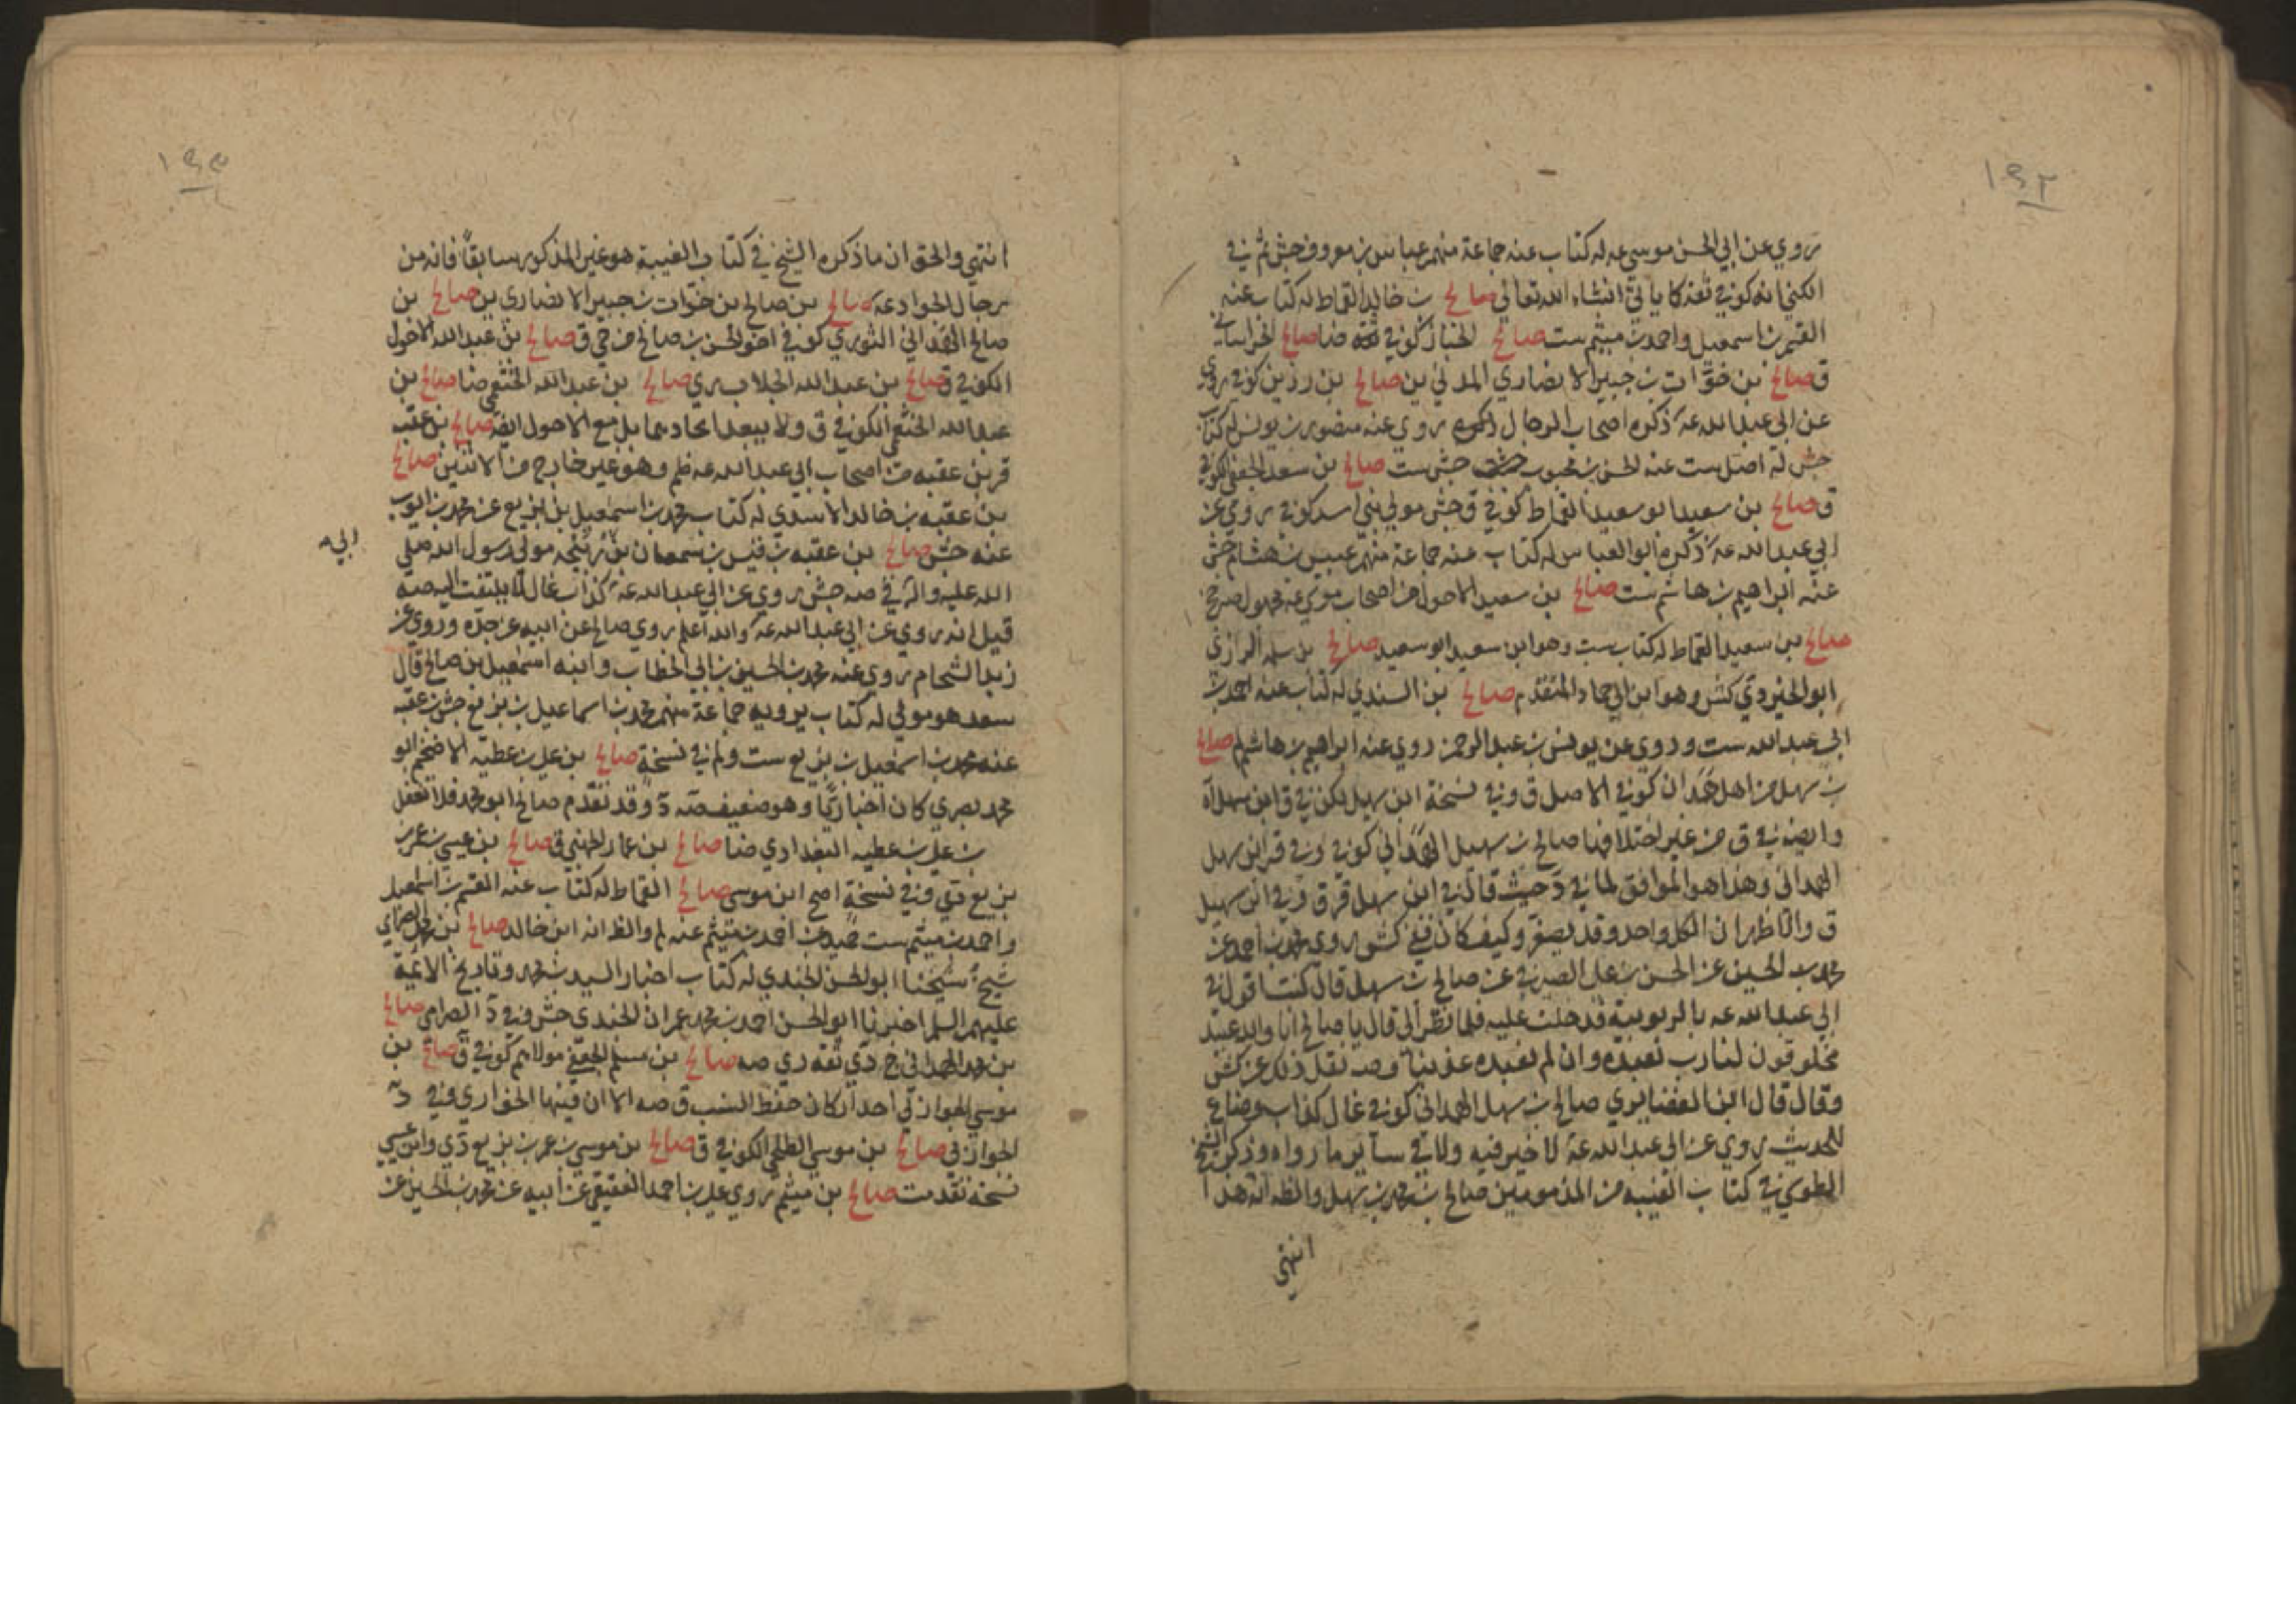 ١٩٢
روي عن ابي الحسن موسى عه له كتاب عنه جماعة منهم عباس بن معروف جش ثم في
الكنى انه كوفي ثقة كما ياتي انشاء الله تعالى صالح بن خالد القماط له كتاب عنه
القسم بن اسمعيل واحمد بن ميثم ست صالح الخباز كوفي ضا صالح الخراساني
ق صالح بن خوّات بن جبير الانصاري المدني ين صالح بن رزين كوفي روى
عن ابي عبد الله عه ذكره اصحاب الرجال روي عنه منصور بن يونس له كتاب
جش له اصل ست عنه الحسن بن محبوب جش ست صالح بن سعد الجعفي الكوفي
ق صالح بن سعيد ابو سعيد القماط كوفي ق جش مولى بني اسد كوفي روي عن
ابي عبد الله عه ذكره ابو العباس له كتاب عنه جماعة منهم عبيس بن هشام جش
عنه ابراهيم بن هاشم ست صالح بن سعيد الاحول من اصحاب موسى عه مجهول
صالح بن سعيد القماط له كتاب ست وهو ابن سعيد ابو سعيد صالح بن سلمه الرازي
ابو الخير دي كش وهو ابن ابي حماد المتقدم صالح بن السندي له كتاب عنه احمد بن
ابي عبد الله ست وروى عن يونس بن عبد الرحمن روى عنه ابراهيم بن هاشم لم صالح
بن سهل من اهل همدان كوفي الاصل ق وفي نسخة ابن سهيل لكن في ق ابن سهل
وايضه في ق من غير اختلاف ما صالح بن سهيل الهمداني كوفي وفي قر ابن سهل
الهمداني وهذا هو الموافق لما في د حيث قال في ابن سهل قر ق وفي ابن سهيل
ق والظاهر ان الكل واحد وقد يصغر وكيف كان ففي كش روى محمد بن احمد عن
محمد بن الحسين عن الحسن بن علي الصيرفي عن صالح بن سهل قال كنت اقول في
ابي عبد الله عه بالربوبية فدخلت عليه فلما نظر الي قال يا صالح انا والله عبيد
مخلوقون لنا رب نعبده وان لم نعبده عذبنا وصه نقل ذلك عن كش
وقال قال ابن الغضايري صالح بن سهل الهمداني كوفي غال كذاب وضاع
للحديث روي عن ابي عبد الله عه لا خير فيه ولا في ساير ما رواه وذكر الشيخ
الطوسي في كتاب الغيبه من المذمومين صالح بن محمد بن سهل والظه انه هذا
انتهى
١٩٣
انتهى والحق ان ما ذكره الشيخ في كتاب الغيبة هو غير المذكور سابقاً فانه من
رجال الجواد عه صالح بن صالح بن خوّات بن جبير الانصاري ين صالح بن
صالح الهمداني الثوري كوفي اخو الحسن بن صالح بن حي ق صالح بن عبد الله الاحول
الكوفي ق صالح بن عبد الله الجلاب ري صالح بن عبد الله الخثعمي ضا صالح بن
عبد الله الخثعمي الكوفي ق ولا يبعد اتحادهما بل مع الاحول ايضه صالح بن عقبه
قر بن عقبه من اصحاب ابي عبد الله عه ظم وهو غير خارج من الاثنين صالح
بن عقبه بن خالد الاسدي له كتاب محمد بن اسمعيل بن بزيع عن محمد بن ايوب
عنه جش صالح بن عقبه بن قيس بن سمعان بن ربيحه مولى رسول الله صلى
ابي
الله عليه واله في صه جش روي عن ابي عبد الله عه كذاب غال لا يلتفت اليه صه
قيل انه روي عن ابي عبد الله عه والله اعلم روي صالح عن ابيه عن جده وروى عن
زيد الشحام روى عنه محمد بن الحسين بن ابي الخطاب وابنه اسمعيل بن صالح قال
سعد هو مولى له كتاب يرويه جماعة منهم محمد بن اسماعيل بن بزيع جش بن عقبه
عنه محمد بن اسمعيل بن بزيع ست ولم في نسخة صالح بن علي بن عطيه الاضخم ابو
محمد بصري كان اخباريا وهو ضعيف صه د وقد تقدم صالح ابو محمد فلا تغفل
بن علي بن عطيه البغدادي ضا صالح بن عمار الجهني ق صالح بن عيسى بن عمر بن
بزيع دي وفي نسخة اصح ابن موسى صالح القماط له كتاب عنه القسم بن اسمعيل
واحمد بن ميثم ست حميد عن احمد بن ميثم عنه لم والظ انه ابن خالد صالح بن محمد الصرامي
شيخ شيخنا ابو الحسن الجندي له كتاب اخبار السيد بن محمد وتاريخ الائمة
عليهم السلم اخبرنا ابو الحسن احمد بن محمد بن عمران الجندي جش وفي د الصرامى صالح
بن محمد الهمداني ج دي ثقه دي صه صالح بن مسلم الجعفي مولاهم كوفي ق صالح بن
موسى الجواربي احد اركان حفظ النسب ق صه الا ان فيها الخواري وفي د
الجواربي صالح بن موسى الطلحي الكوفي ق صالح بن موسى بن عمر بن بزيع دي وابن عيسى
نسخه تقدمت صالح بن ميثم روي علي بن احمد العقيقي عن ابيه عن محمد بن الحسين عن